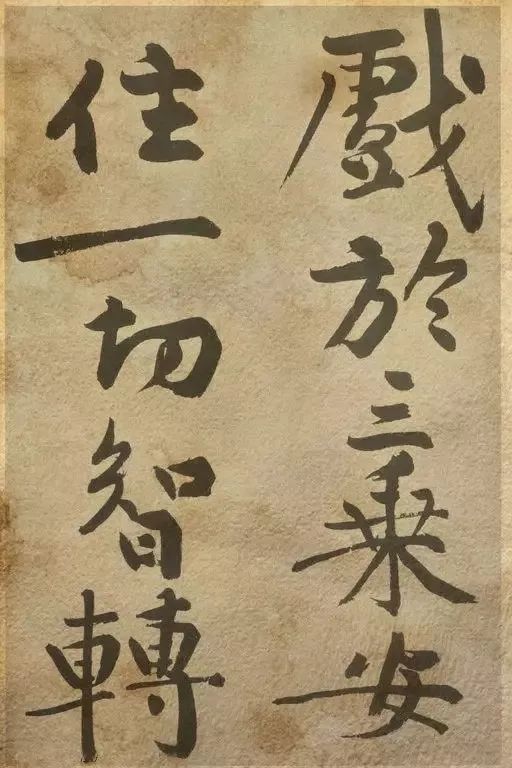 戲於三乗安
住一切智轉